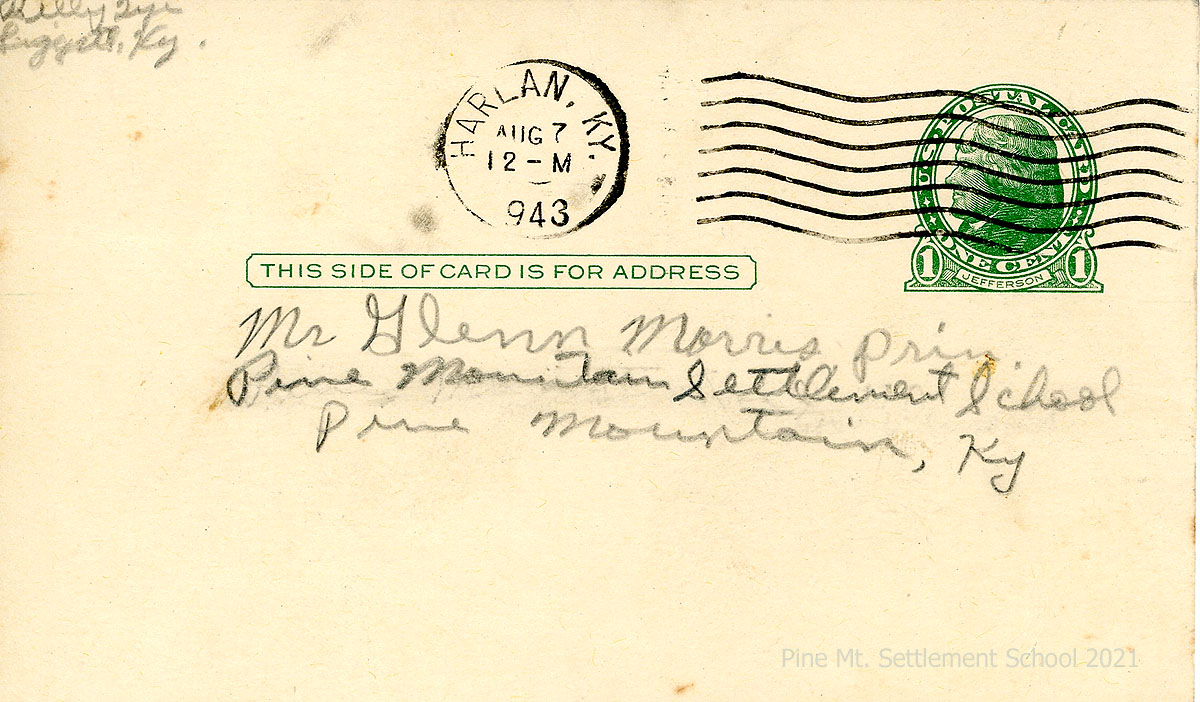 Kelly Sye
Liggett, Ky.
HARLAN, KY.
AUG 7
12 - M
943
U.S. POSTAL CARD
ONE CENT
1 JEFFERSON 1
THIS SIDE OF CARD IS FOR ADDRESS
Mr Glenn Morris prin.
Pine Mountain Settlement School
Pine Mountain, Ky
Pine Mt. Settlement School 2021